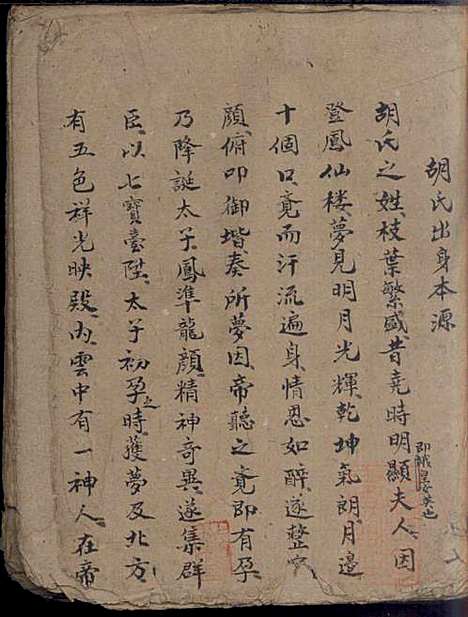 胡氏出身本源
胡氏之姓、枝葉繁盛、昔堯時明顯夫人、因
即娥皇女英也
登鳳仙楼、夢見明月光輝、乾坤氣朗、月邉
十個口、竟而汗流遍身、情思如醉、遂整
顔、俯叩御堦、奏所夢因、帝聽之竟、即有孕
乃降誕太子、鳳準龍顔、精神奇異、遂集群
臣、以七寶臺陞、太子初孕之時、獲夢及北方
有五色祥光映殿、内雲中有一神人、在帝